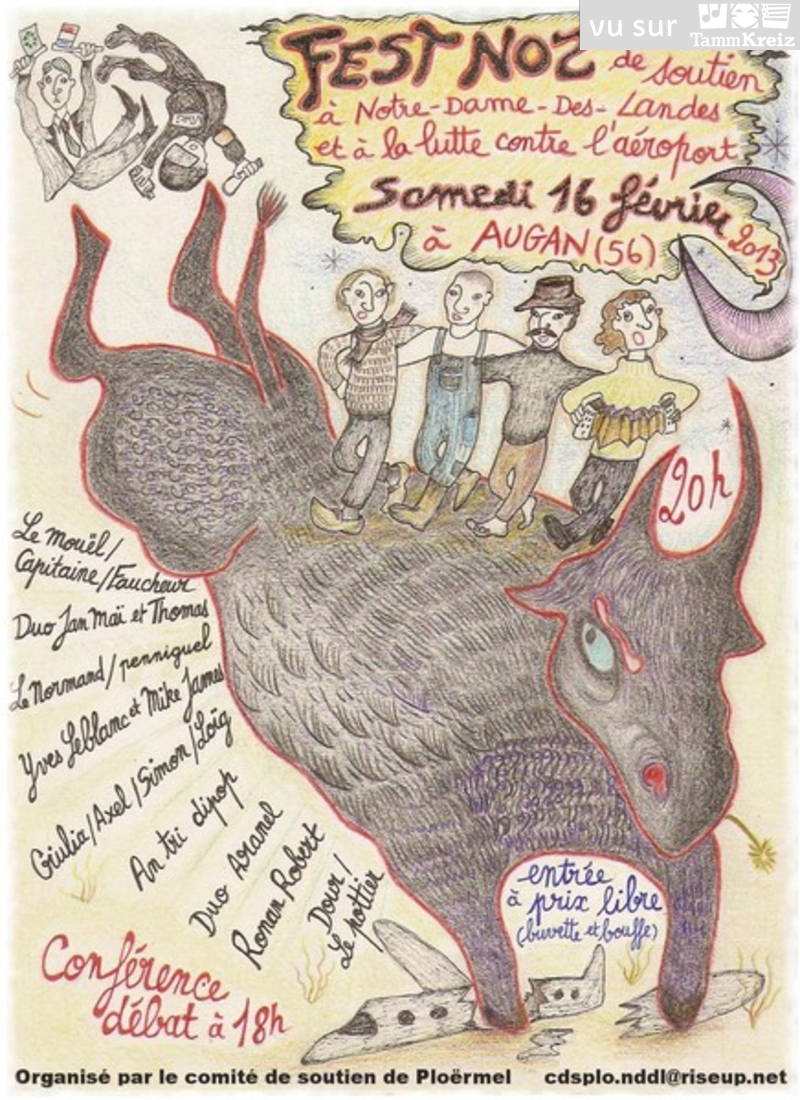 vu sur TammKreiz
FEST NOZ de soutien
à Notre-Dame-Des-Landes
et à la lutte contre l'aéroport
Samedi 16 février 2013
à AUGAN (56)
20h
Le mouël/
Capitaine/Faucheur
Duo Jan Maï et Thomas
Le Normand/penniguel
Yves Leblanc et Mike James
Giulia/Axel/Simon/Loïg
An tri dipop
Duo Aranel
Ronan Robert
Dour/
Le pottier
entrée
à prix libre
(buvette et bouffe)
Conférence
débat à 18h
Organisé par le comité de soutien de Ploërmel cdsplo.nddl@riseup.net